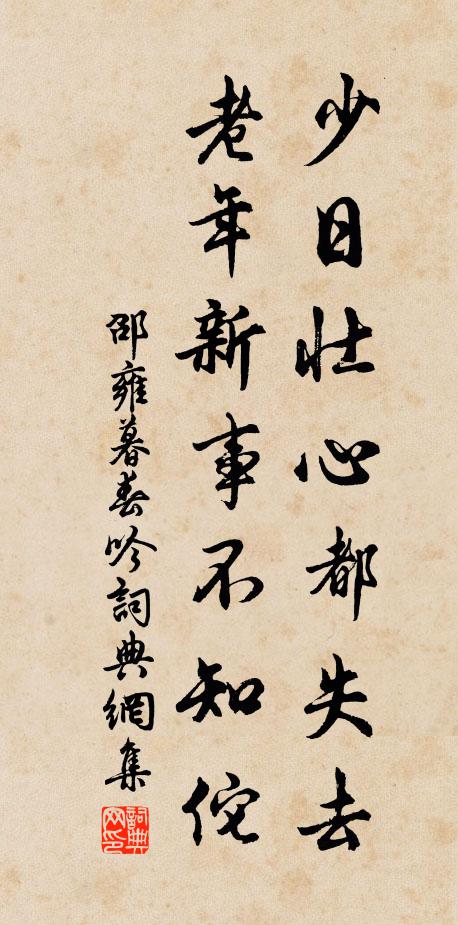 少日壯心都失去
老年新事不知佗
邵雍暮春吟詞典網集
詞典網印